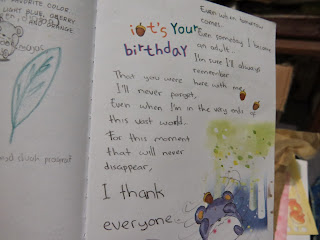 FAVORITE COLOR
LIGHT BLUE, CHERRY
AND ORANGE
it's Your
birthday
That you were here with me
I'll never forget,
Even when I'm in the very ends of
this vast world..
For this moment
that will never
disappear,
I thank
everyone
Even when tomorrow
comes..
Even someday I become
an adult..
I'm sure I'll always
remember